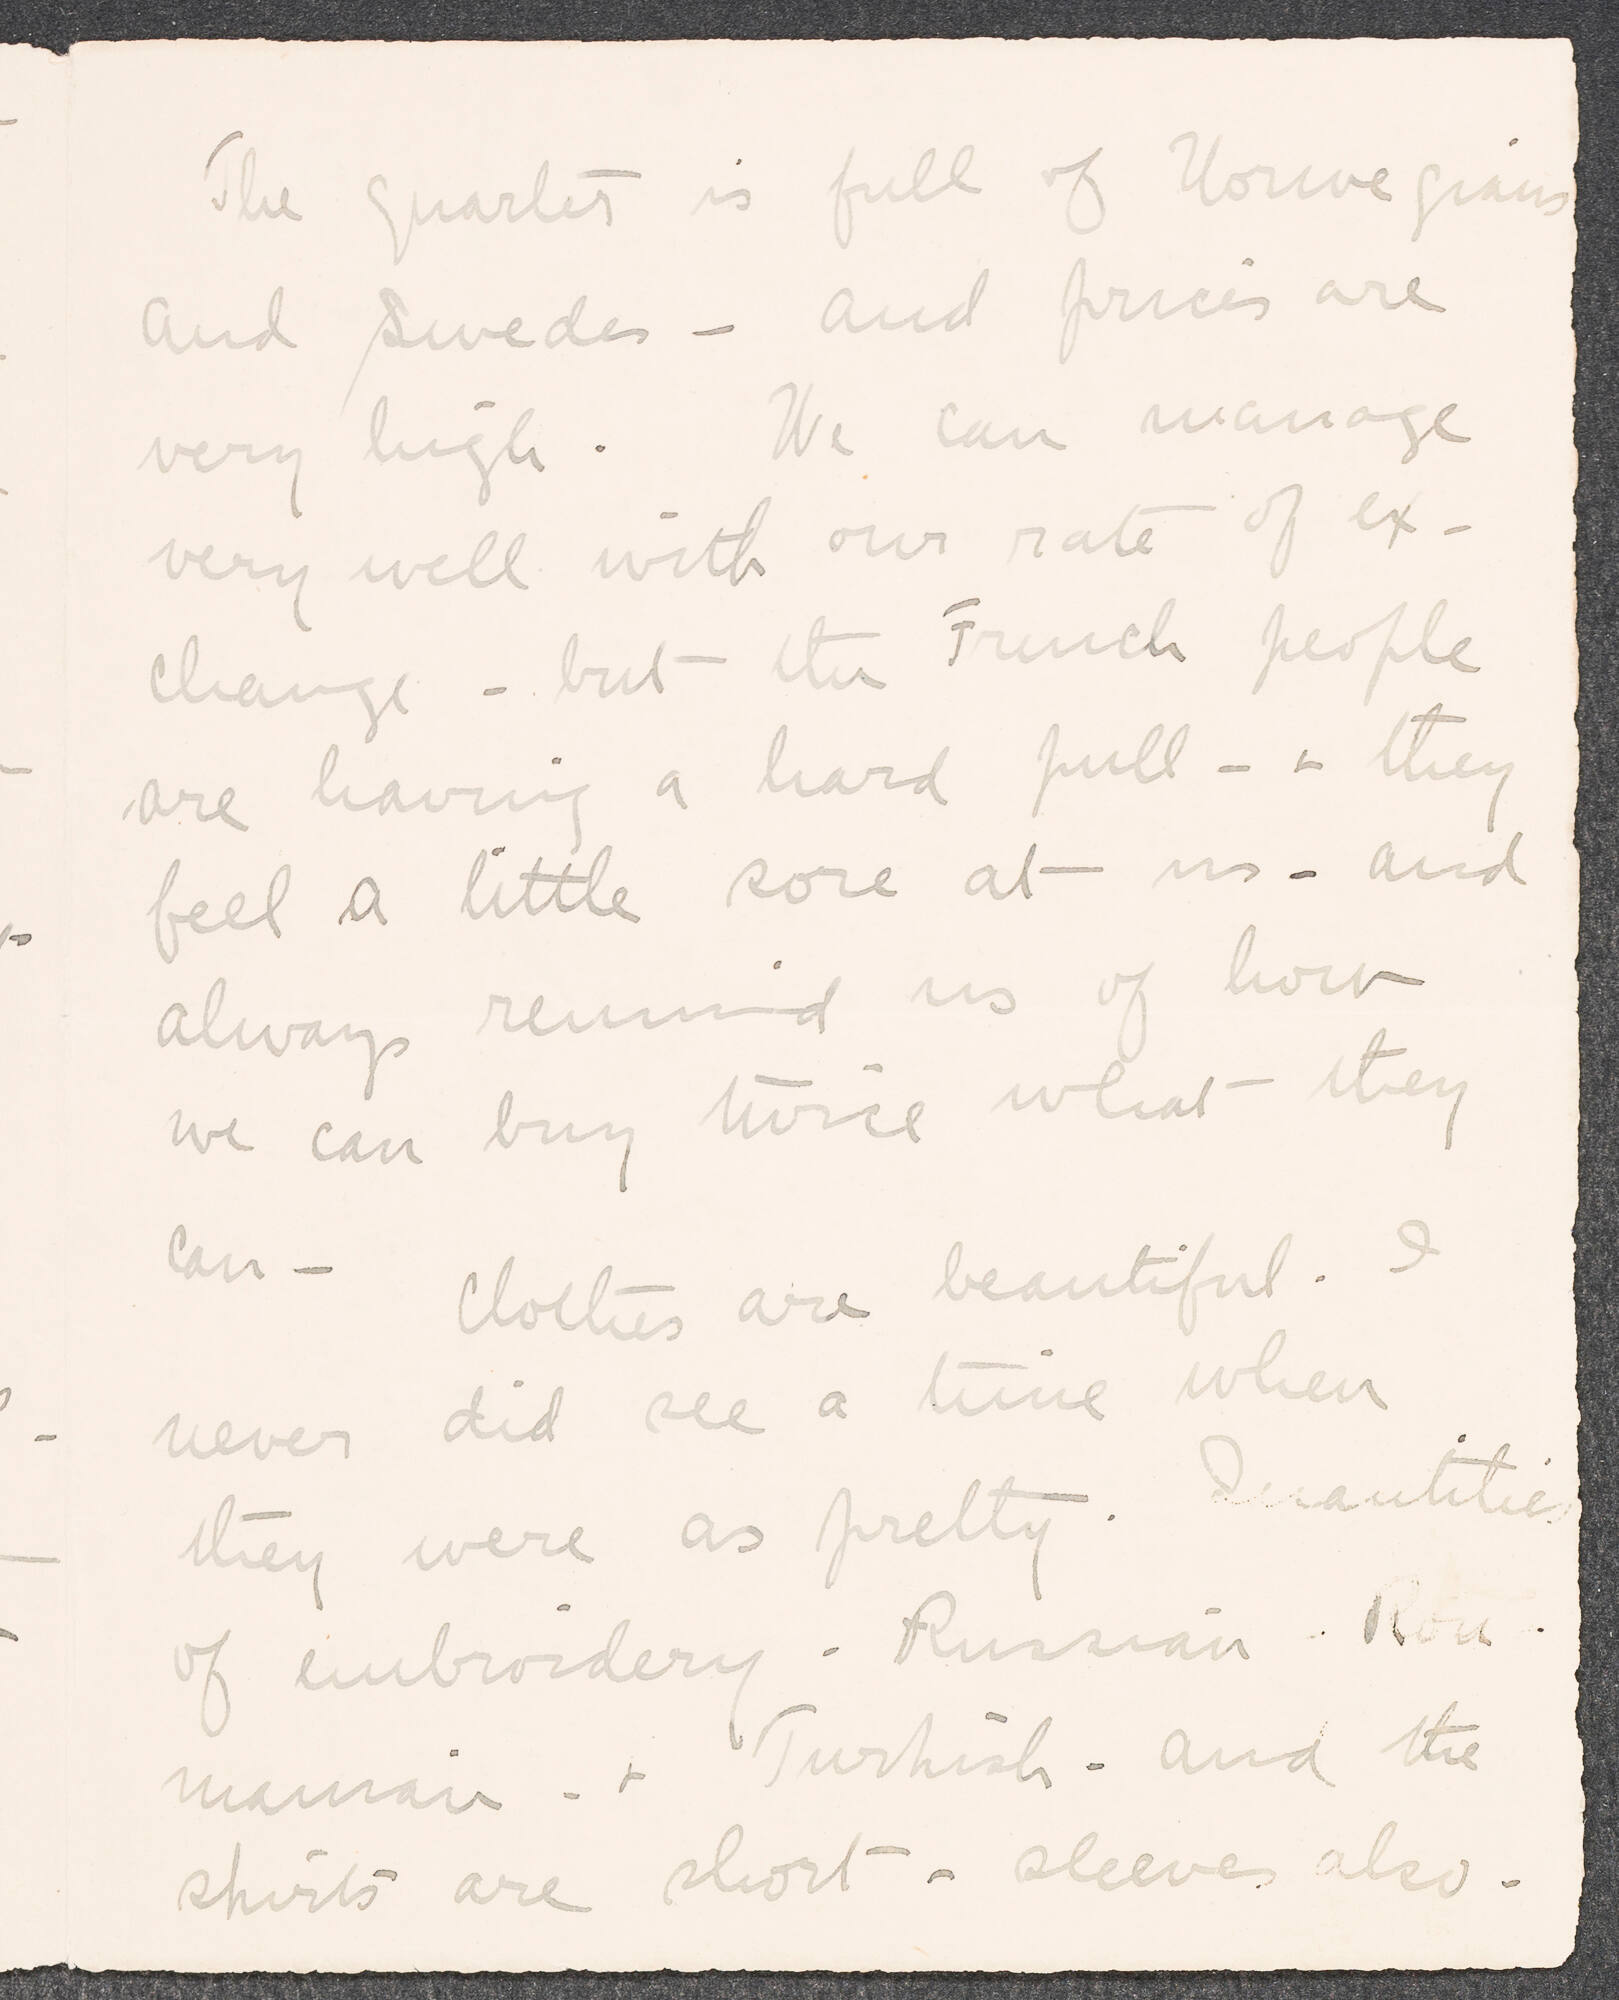 The quarter is full of Norwegians
and Swedes - and prices are
very high. We can manage
very well with our rate of ex-
change - but the French people
are having a hard pull - + they
feel a little sore at us - and
always remind us of how
we can buy twice what they
can - Clothes are beautiful. I
never did see a time when
they were as pretty. Quantities
of embroidery - Russian - Rou-
manian - + Turkish - and the
skirts are short - sleeves also -